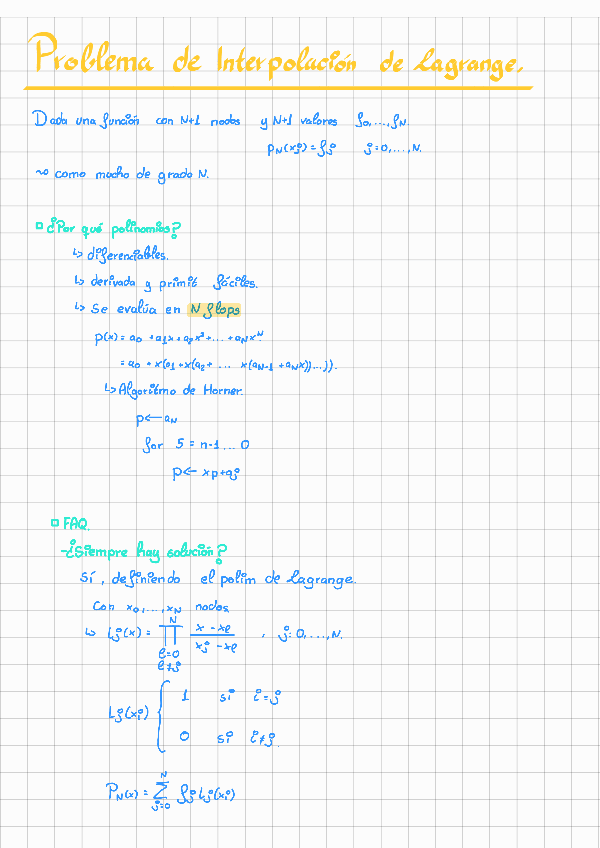 Problema de Interpolación de Lagrange.
Dada una función con N+1 nodos y N+1 valores f₀,...,f_N.
p_N(x_j) = f_j j=0,...,N.
~> como mucho de grado N.
¿Por qué polinomios?
↳ diferenciables.
↳ derivada y primit fáciles.
↳ Se evalúa en N flops
p(x) = a₀ + a₁x + a₂x² + ... + a_N x^N
= a₀ + x(a₁ + x(a₂ + ... x(a_{N-1} + a_N x))...)).
↳ Algoritmo de Horner.
p ← a_N
for S = n-1 ... 0
p ← xp + a_j
FAQ.
-¿Siempre hay solución?
Sí, definiendo el polim de Lagrange.
Con x₀,...,x_N nodos
↳ L_j(x) = ∏_{ℓ=0, ℓ≠j}^{N} (x - x_ℓ)/(x_j - x_ℓ) , j: 0,...,N.
L_j(x_i) { 1 si i=j
0 si i≠j.
P_N(x) = ∑_{j=0}^{N} f_j L_j(x_i)